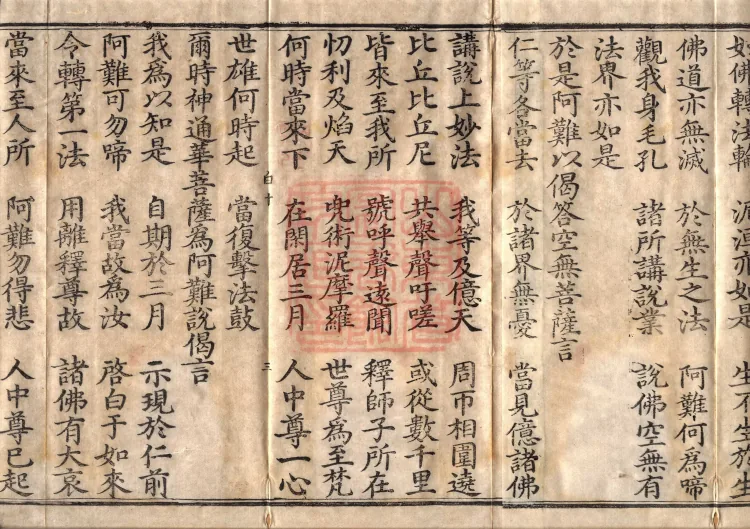 妙佛轉法輪 泥洹亦如是 生不生於生
佛道亦無滅 於無生之法 阿難何為啼
觀我身毛孔 諸所講說業 說佛空無有
法界亦如是
於是阿難以偈答空無菩薩言
仁等各當去 於諸界無憂 當見億諸佛
講說上妙法 我等及億天 周帀相圍遶
比丘比丘尼 共舉聲吁嗟 或從數千里
皆來至我所 號呼聲遠聞 釋師子所在
忉利及焰天 兜術泥摩羅 世尊為至梵
何時當來下 在閑居三月 人中尊一心
白十 三
世雄何時起 當復擊法鼓
爾時神通華菩薩為阿難說偈言
我為以知是 自期於三月 示現於仁前
阿難可勿啼 我當故為汝 啓白于如來
令轉第一法 用離釋尊故 諸佛有大哀
當來至人所 阿難勿得悲 人中尊已起